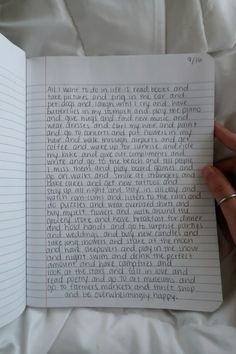 9/16
All I want to do in life is read books and
take pictures and sing in the car and
pet dogs and laugh until I cry and have
butterflies in my stomach and play the piano
and give hugs and find new music and
wear dresses and curl my hair and paint
and go to concerts and put flowers in my
hair and walk through airports and get
coffee and wake up for sunrise and ride
my bike and give out compliments and
write and go to the beach and tell people
I miss them and play board games and
go on walks and smile at strangers and
bake cakes and get new tattoos and
stay up all night and stay in all day and
watch rain coms and listen to the rain and
do puzzles and wear oversized shirts and
buy myself flowers and walk around the
grocery store and have breakfast for dinner
and hold hands and go to surprise parties
and weddings and buy new candles and
take long showers and stare at the moon
and have sleepovers and play in the snow
and night swim and drink the perfect
amount and have campfires and
look at the stars and fall in love and
read poetry and go to art museums and
go to farmers markets and thrift shop
and be overwhelmingly happy.